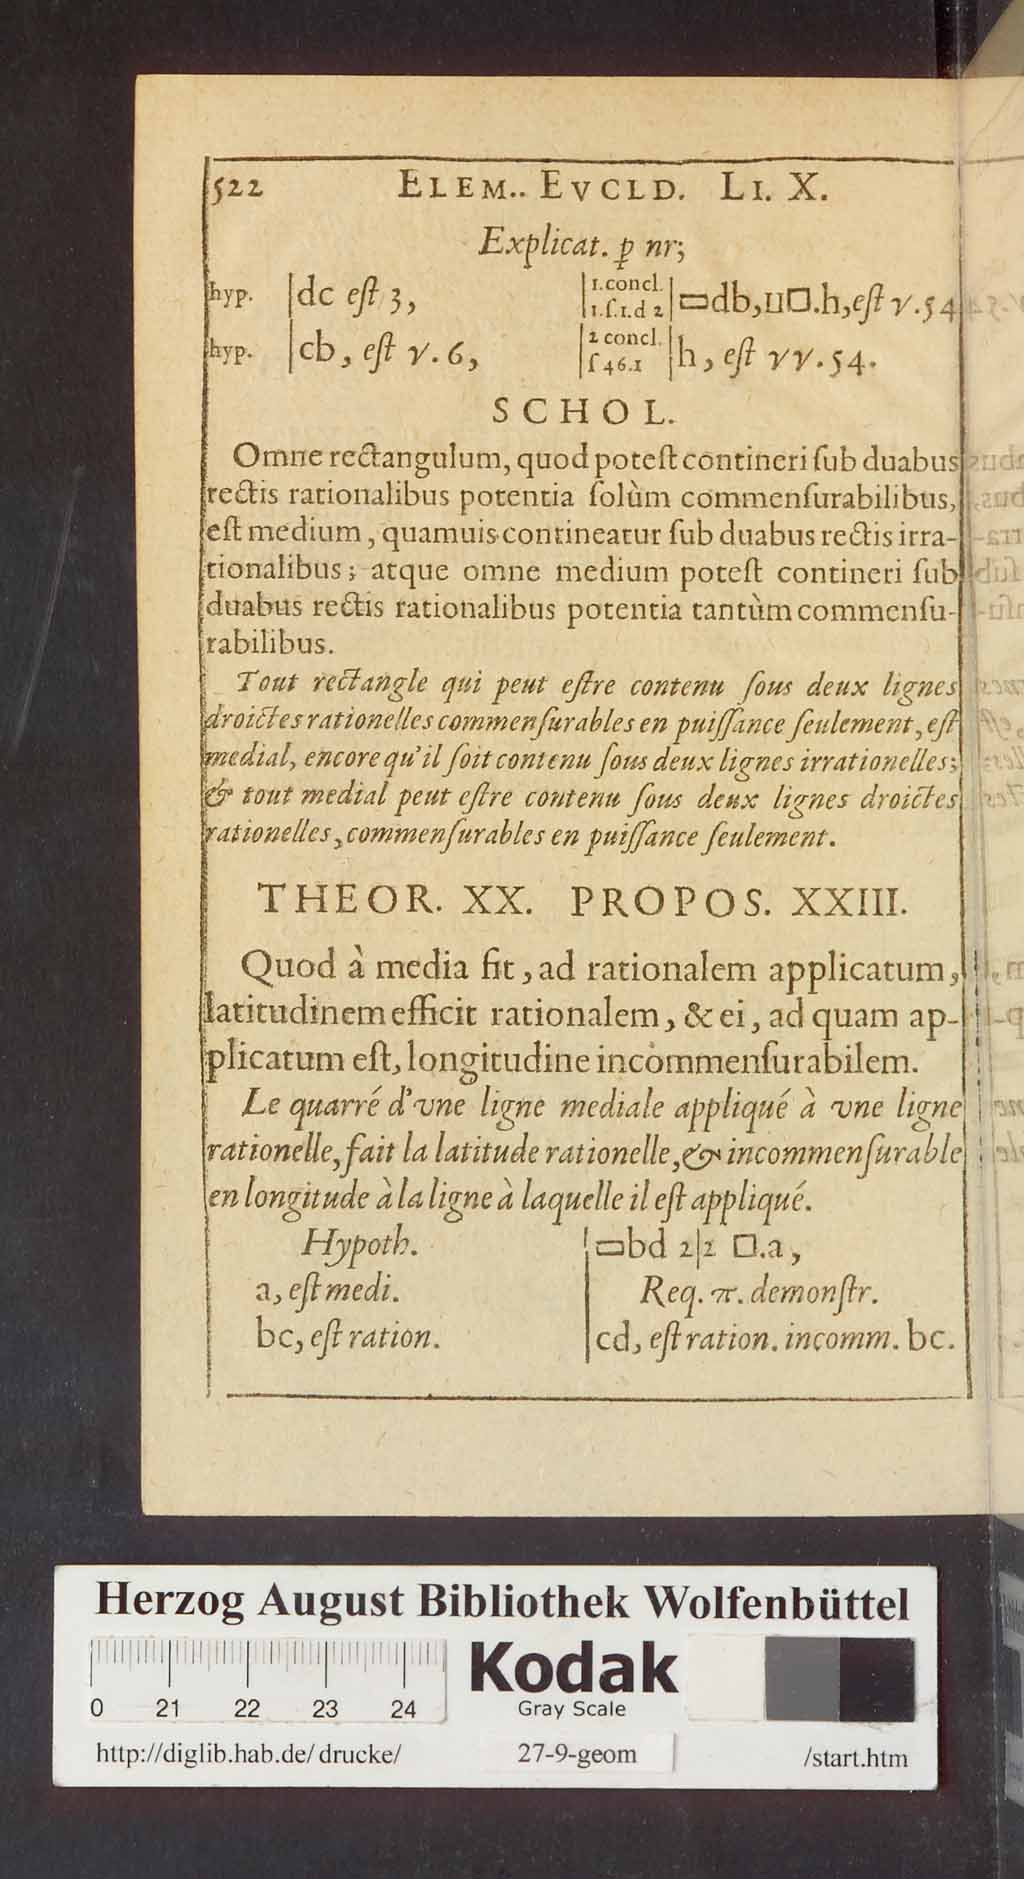 522 ELEM.. EVCLD. LI. X.
Explicat. ꝑ nr;
hyp. |dc eſt 3,
hyp. |cb, eſt √. 6,
|1.concl. 1.ſ.1.d 2| ▭db, ⊔□.h, eſt √.54
|2 concl. ſ 46.1 |h, eſt √√.54.
SCHOL.
Omne rectangulum, quod poteſt contineri ſub duabus
rectis rationalibus potentia ſolùm commenſurabilibus,
eſt medium, quamuis contineatur ſub duabus rectis irra-
tionalibus; atque omne medium poteſt contineri ſub
duabus rectis rationalibus potentia tantùm commenſu-
rabilibus.
Tout rectangle qui peut eſtre contenu ſous deux lignes
droictes rationelles commenſurables en puiſſance ſeulement, eſt
medial, encore qu'il ſoit contenu ſous deux lignes irrationelles;
& tout medial peut eſtre contenu ſous deux lignes droictes
rationelles, commenſurables en puiſſance ſeulement.
THEOR. XX. PROPOS. XXIII.
Quod à media fit, ad rationalem applicatum,
latitudinem efficit rationalem, & ei, ad quam ap-
plicatum eſt, longitudine incommenſurabilem.
Le quarré d'vne ligne mediale appliqué à vne ligne
rationelle, fait la latitude rationelle, & incommenſurable
en longitude à la ligne à laquelle il eſt appliqué.
Hypoth.
a, eſt medi.
bc, eſt ration.
▭bd 2|2 □.a,
Req. π. demonſtr.
cd, eſt ration. incomm. bc.
Herzog August Bibliothek Wolfenbüttel
0 21 22 23 24
Kodak
Gray Scale
http://diglib.hab.de/drucke/ 27-9-geom /start.htm